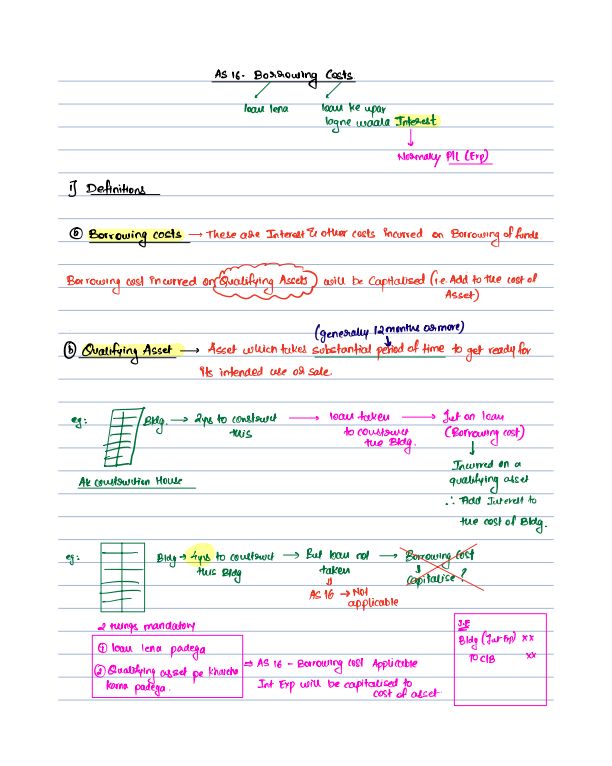 AS 16 - Borrowing Costs
loan lena
loan ke upar
lagne waala Interest
Normally P/L (Exp)
1) Definitions
(a) Borrowing costs → These are Interest & other costs incurred on Borrowing of funds
Borrowing cost incurred on Qualifying Assets will be Capitalised (i.e. Add to the cost of
Asset)
(generally 12 months or more)
(b) Qualifying Asset → Asset which takes substantial period of time to get ready for
its intended use or sale.
eg: Bldg. → 2yrs to construct
this
→ loan taken
to construct
the Bldg.
→ Int on loan
(Borrowing cost)
Incurred on a
qualifying asset
∴ Add Interest to
the cost of Bldg.
AK construction House
eg: Bldg → 4yrs to construct
this Bldg
→ But loan not
taken
⇓
AS 16 → Not
applicable
→ Borrowing cost
⇓
Capitalise?
2 things mandatory
① loan lena padega
② Qualifying asset pe kharcha
karna padega.
⇒ AS 16 - Borrowing cost Applicable
Int Exp will be capitalised to
cost of asset
J.E
Bldg (Int Exp) xx
To C/B xx